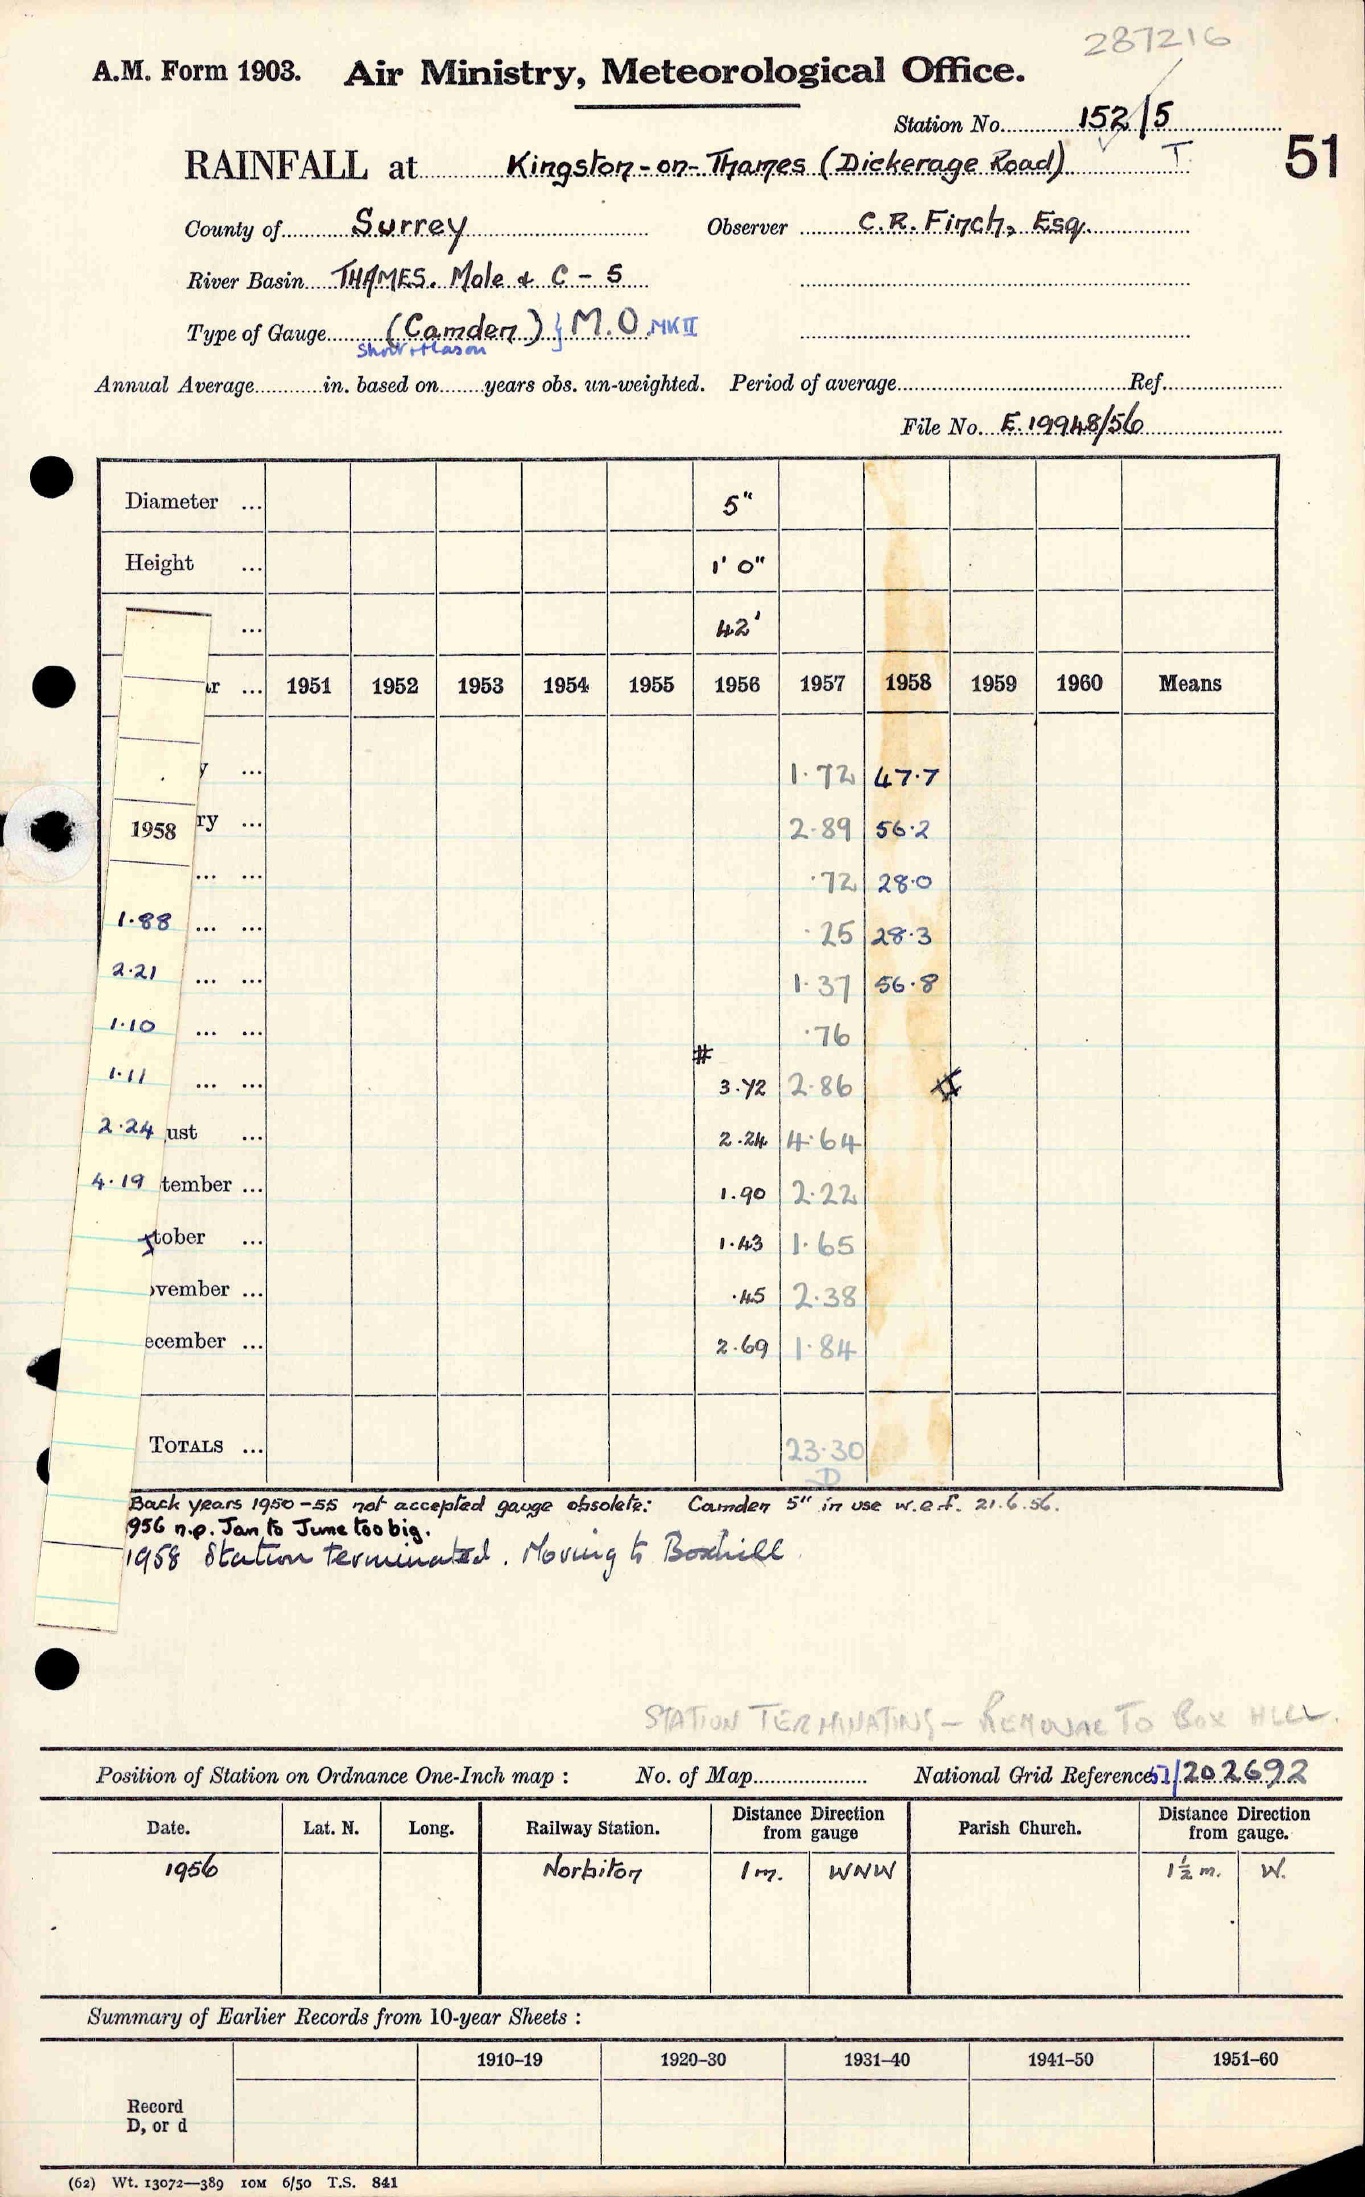 287216
A.M. Form 1903. Air Ministry, Meteorological Office.
Station No. 152/5
RAINFALL at Kingston-on-Thames (Dickerage Road) T. 51
County of Surrey Observer C.R. Finch, Esq.
River Basin THAMES. Mole & C - 5
Type of Gauge (Camden) } M.O. MK II
Short & Mason
Annual Average in. based on years obs. un-weighted. Period of average Ref.
File No. E.19948/56
Diameter ... 5"
Height ... 1' 0"
... 42'
ar ... 1951 1952 1953 1954 1955 1956 1957 1958 1959 1960 Means
y ... 1.72 47.7
1958 ry ... 2.89 56.2
... ... .72 28.0
1.88 ... ... .25 28.3
2.21 ... ... 1.37 56.8
1.10 ... ... .76
#
1.11 ... ... 3.72 2.86 #
2.24 ust ... 2.24 4.64
4.19 tember ... 1.90 2.22
tober ... 1.43 1.65
ovember ... .45 2.38
ecember ... 2.69 1.84
TOTALS ... 23.30
D
Back years 1950-55 not accepted gauge obsolete: Camden 5" in use w.e.f. 21.6.56.
956 n.p. Jan to June too big.
1958 Station terminated. Moving to Boxhill
STATION TERMINATING - REMOVAL TO BOX HILL.
Position of Station on Ordnance One-Inch map : No. of Map National Grid Reference 51/202692
Date. Lat. N. Long. Railway Station. Distance Direction from gauge Parish Church. Distance Direction from gauge.
1956 Norbiton 1 m. WNW 1½ m. W.
Summary of Earlier Records from 10-year Sheets :
1910–19 1920–30 1931–40 1941–50 1951–60
Record
D, or d
(62) Wt. 13072—389 10M 6/50 T.S. 841